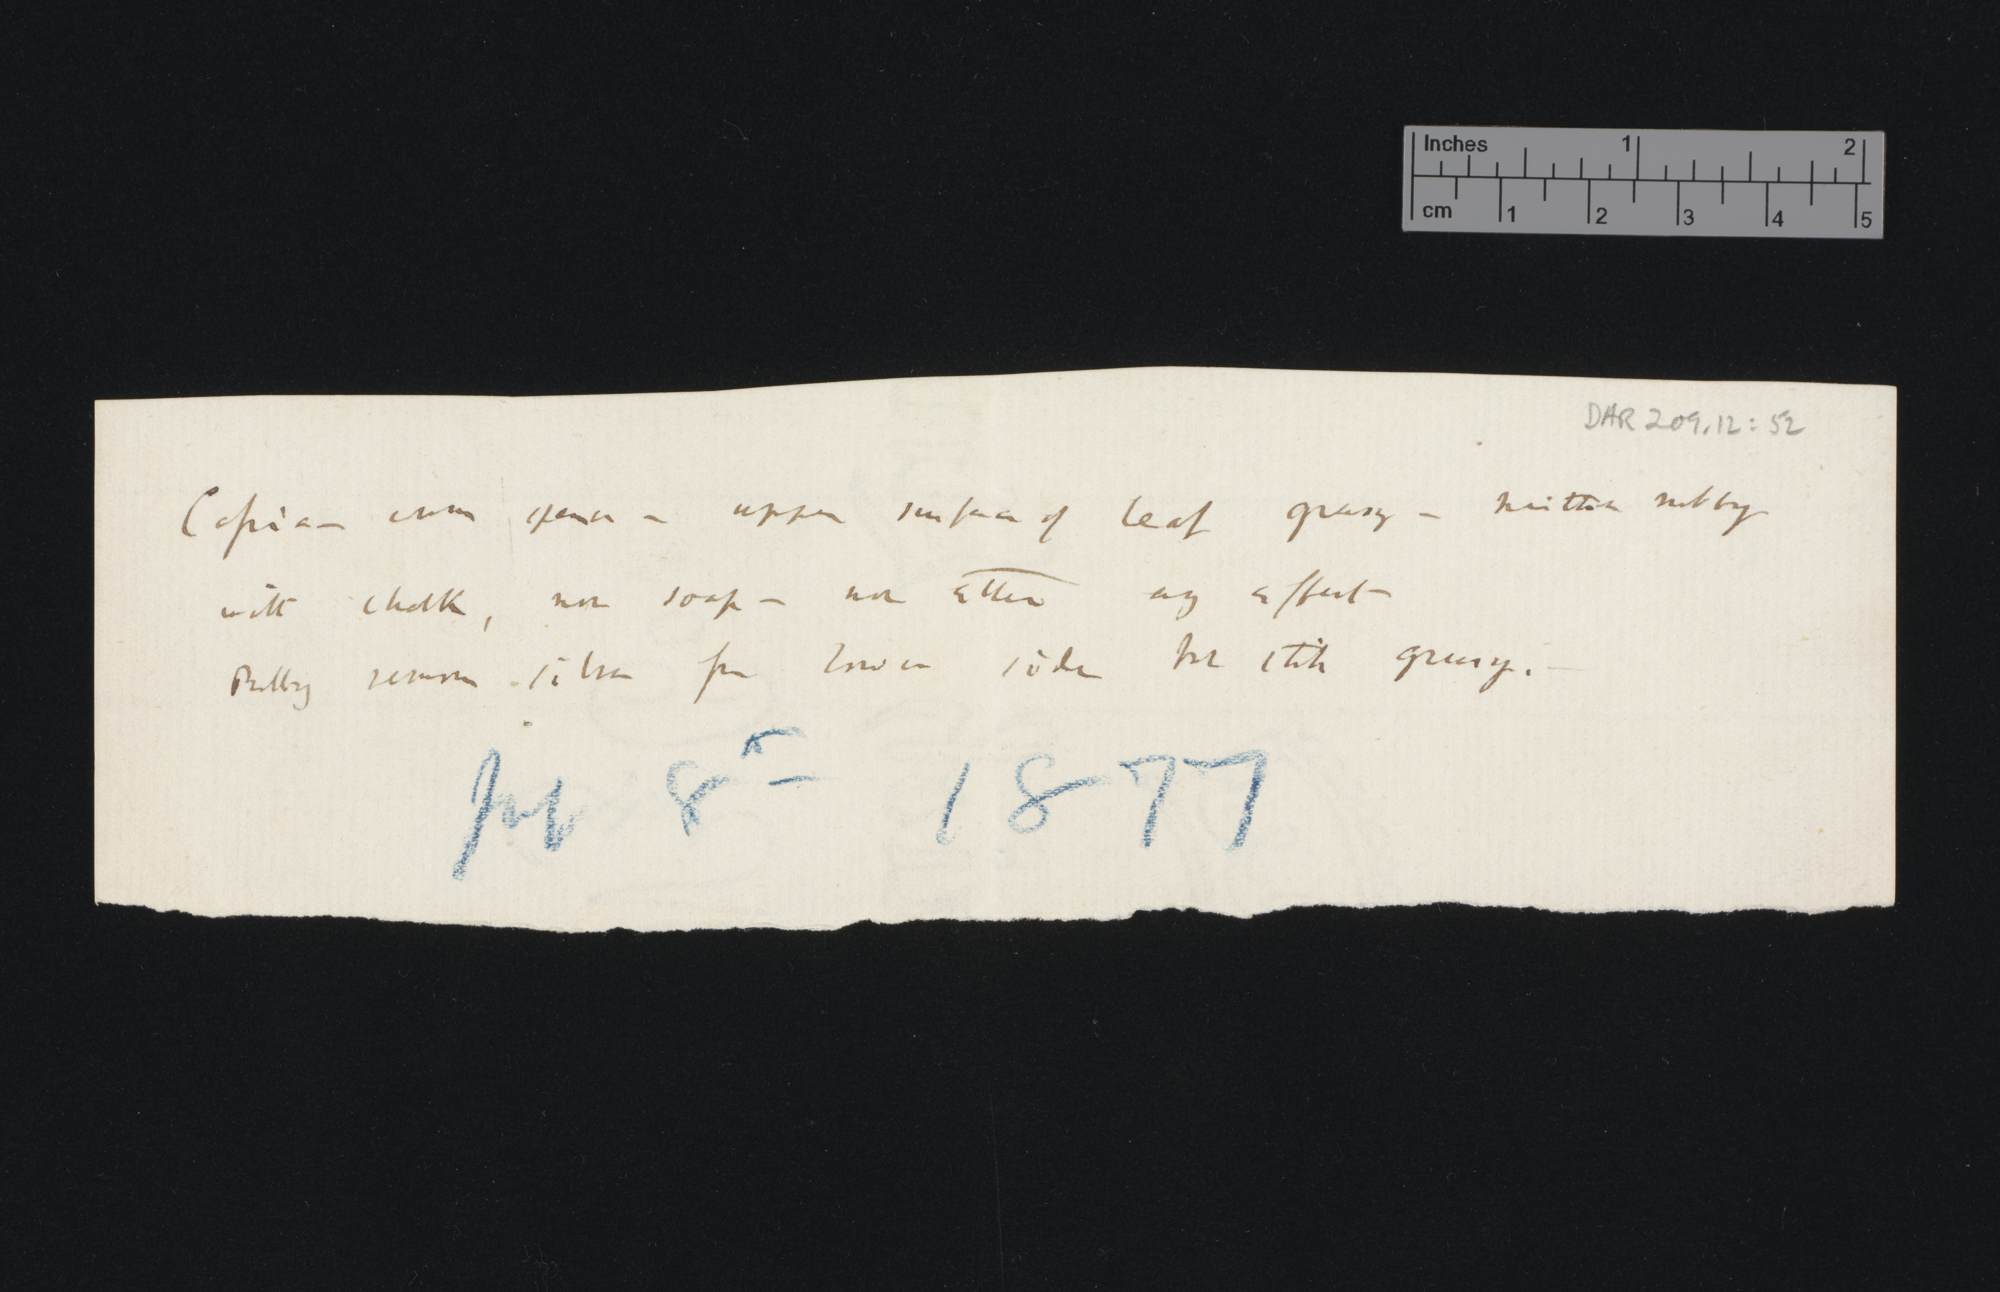 Inches 1 2
cm 1 2 3 4 5
DAR 209.12:52
upper surface of leaf greasy – neither rubbing
with chalk, nor soap – nor ether any effect
Rubbing removes silver from lower side but still greasy. –
July 8th 1877